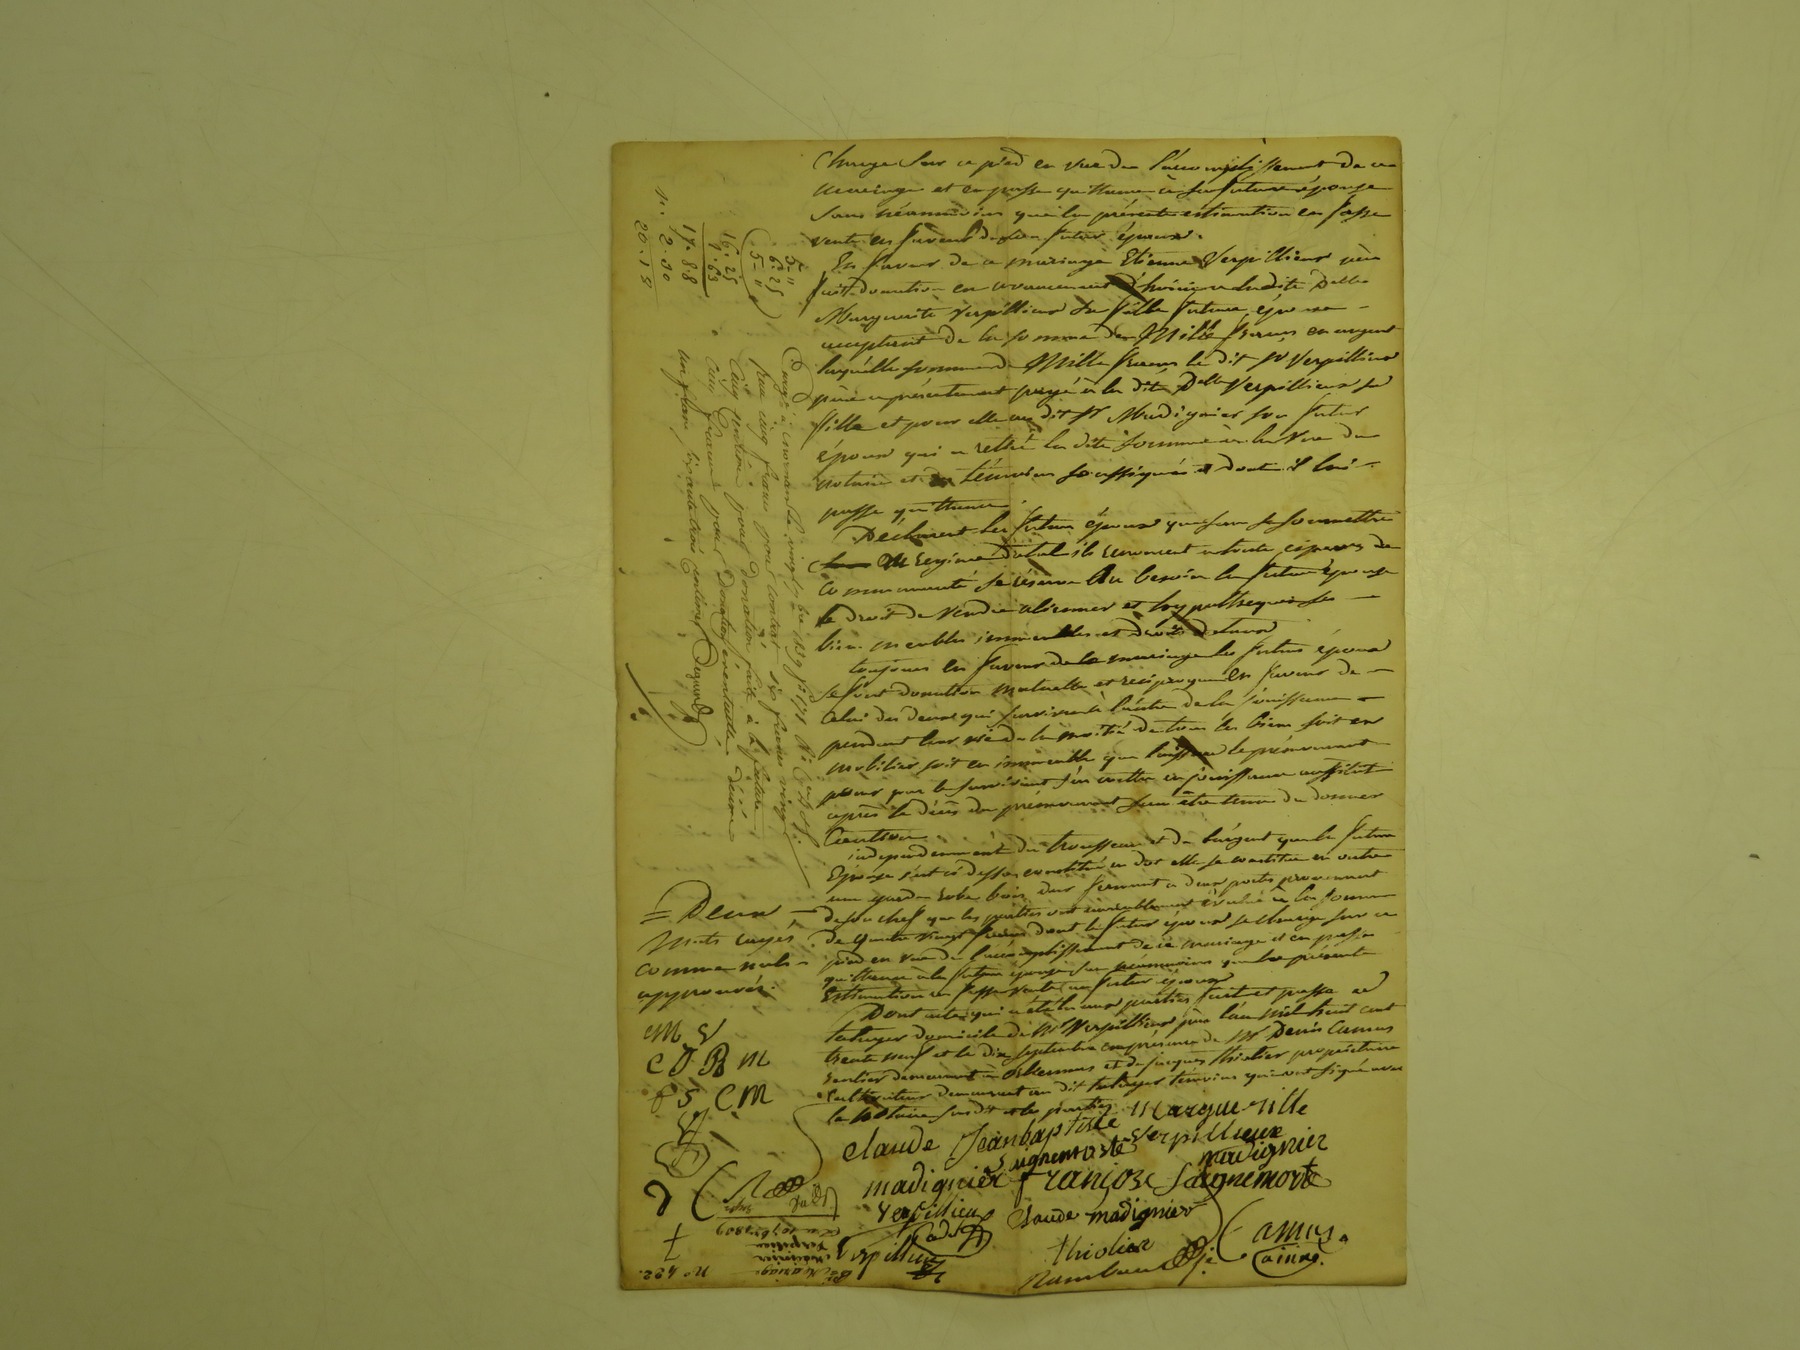 Charge sur ce pied en vue de l'accomplissement de ce
mariage et en passe quittance à sa future épouse
sans néanmoins que la présente estimation en fasse
vente en faveur de son futur époux.
En faveur de ce mariage Etienne Verpillieux père
fait donation en avancement d'hoirie à ladite Delle
Marguerite Verpillieux sa fille future épouse
acceptant de la somme de Mille francs en argent
laquelle somme de Mille francs le dit Sr Verpillieux
père a présentement payé à la dite Delle Verpillieux sa
fille et pour elle au dit Sr Madignier son futur
époux qui a retiré la dite somme à la vue du
notaire et témoins soussignés et dont il lui
passe quittance
Déclarent les futurs époux que sans se soumettre
au Régime Dotal ils renoncent à toute espèces de
Communauté se réserve au besoin la future épouse
le droit de vendre aliéner et hypothéquer ses
biens meubles immeubles et droits
toujours en faveur de ce mariage les futurs époux
se font donation mutuelle et réciproque en faveur de
celui des deux qui survivra à l'autre de la jouissance
pendant leur vie de la moitié de tous les biens soit en
mobilier soit en immeuble que laissera le prémourant
pour par le survivant s'en mettre en jouissance aussitôt
après le décès du prémourant sans être tenu de donner
Caution.
indépendamment du trousseau et de l'argent que la future
Epouse s'est ci dessus constitué en dot elle se constitue en outre
une garde robe bois dur fermant à deux portes provenant
de son chef que les parties ont ensemblement évalué à la somme
de quatre vingt francs dont le futur époux se charge sur ce
pied en vue de l'accomplissement de ce mariage et en passe
quittance à la future épouse sans néanmoins que la présente
Estimation en fasse vente au futur époux
Dont acte qui a été lu aux parties fait et passé au
domicile de Mr Verpillieux père l'an mil huit cent
trente neuf et le dix septembre en présence de Mr Denis Camus
rentier demeurant à et de Jacques thiolier propriétaire
Cultivateur demeurant au dit témoins qui ont signé avec
le Notaire susdit et les parties
= Deux
Mots rayés
comme nuls
approuvés.
M V
C J B M
F S C M
Margueritte
Claude Jeanbaptiste Verpillieux
madignier
madignier françose Sagnemorte
Verpillieux Claude madignier
Verpillieux thiolier Camus
5 "
6. 25
5 "
16. 25
1. 63
17. 88
2. 30
20. 18
Enregistré à vingt 7bre 1839
Reçu cinq francs pour contrat six francs vingt
Cinq centimes pour donation faite à la future
Cinq francs pour donation éventuelle, décime
un franc soixante trois centimes
Verpillieux
Madignier
Mariage
No 422.